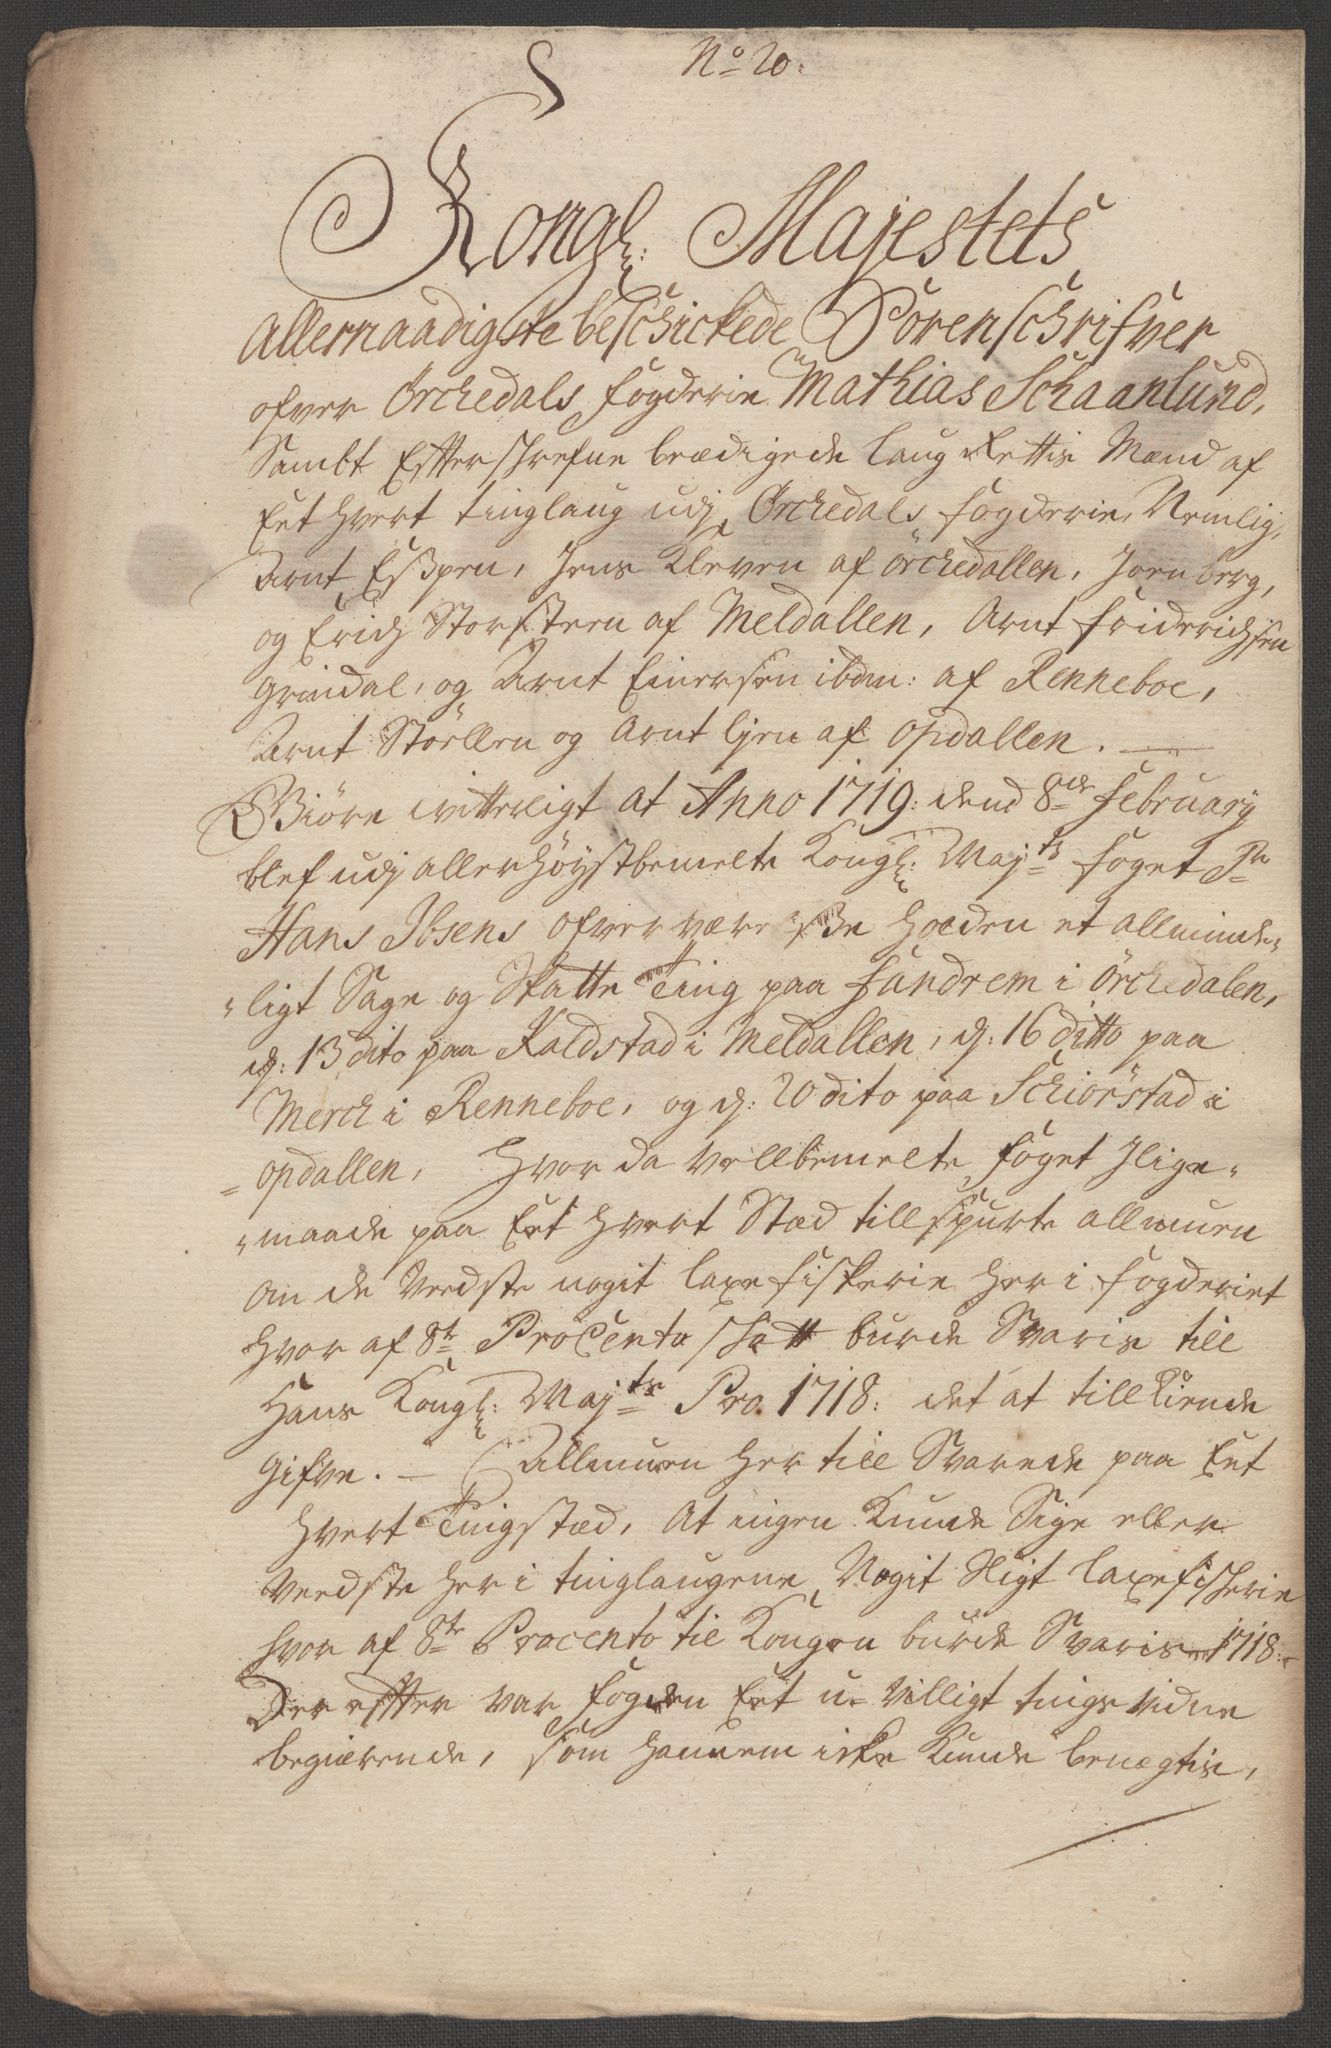 No 20.
Kongl: Majestets
Allernaadigste beschickede Sorenschrifver
ofver Örchedals fogderie Mathias Schaanlund,
Sambt Effterschrefne beædigede Laug Rettis Mænd af
Eet hvert tinglaug udj Örchedals fogderie, Nemlig,
Arnt Eßpen, Jens Kleven af Örchedallen, Joen berg,
og Erich Storsteen af Meldallen, Arnt Friderichsen
Grindal, og Arnt Einersen ibdm: af Renneboe,
Arnt Stöellen og Arnt Ljen af Opdallen. —
Giöre witterligt at Anno 1719: dend 8de February
blef udj allerhöystbemelte Kongl: Majts foget Sr
Hans Ibsens ofverværelße holden et allminde„
„ligt Sage og Skatte Ting paa Fandrem i Örchedalen,
d: 13 dito paa Kaldstad i Meldallen, d: 16 ditto paa
Merch i Renneboe, og d: 20 dito paa Schiörstad i
=Opdallen, Hvor da Vellbemelte foget Jlige„
„maade paa Eet hvert Stæd tillspurte allmuen
om de Veedste nogit laxe fiskerie her i fogderiet
hvor af 8te Procento schatt burde Svaris till
Hans Kongl: Majts Pro 1718: det at tillkiende
Gifve. — Allmuen her till Svarede paa Eet
hvert Tingstæd, at ingen Kunde Sige eller
Veedste her i tinglaugene Nogit Sligt laxefischerie
hvor af 8te Procento til Kongen burde Svaris 1718:
Der effter var fogden Eet u-villigt tings vidne
begiærende, som hannem icke Kunde benægtis,